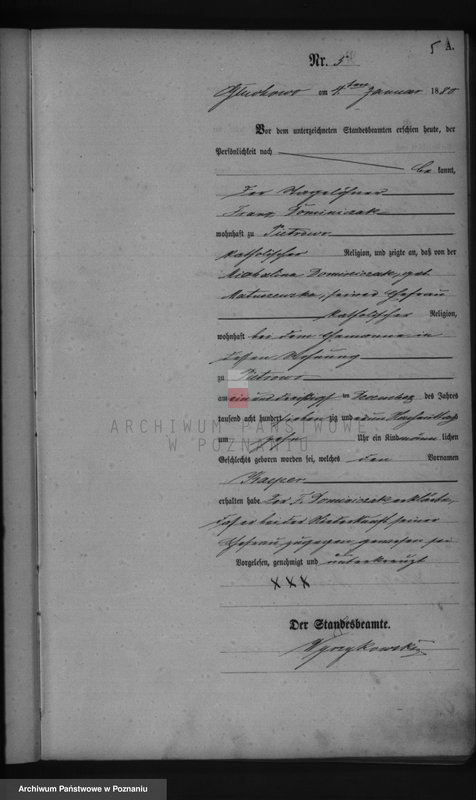 5 A.
Nr. 5
Gluchowo am 4ten Januar 1880
Vor dem unterzeichneten Standesbeamten erschien heute, der
Persönlichkeit nach
be kannt,
der Tagelöhner
Franz Dominiczak
wohnhaft zu Pietrowo
katholischer Religion, und zeigte an, daß von der
Michalina Dominiczak, geb.
Matuszewska, seiner Ehefrau
katholischer Religion,
wohnhaft bei dem Ehemanne in
dessen Wohnung
zu Pietrowo
am ein und dreißigst en Dezember des Jahres
tausend acht hundert sieben zig und neun Nachmittags
um zehn Uhr ein Kind männ lichen
Geschlechts geboren worden sei, welches den Vornamen
Kacper
erhalten habe. Der F. Dominiczak erklärte,
daß er bei der Niederkunft seiner
Ehefrau zugegen gewesen sei
Vorgelesen, genehmigt und unterkreuzt
XXX
Der Standesbeamte.
ARCHIWUM PAŃSTWOWE
W POZNANIU
Archiwum Państwowe w Poznaniu